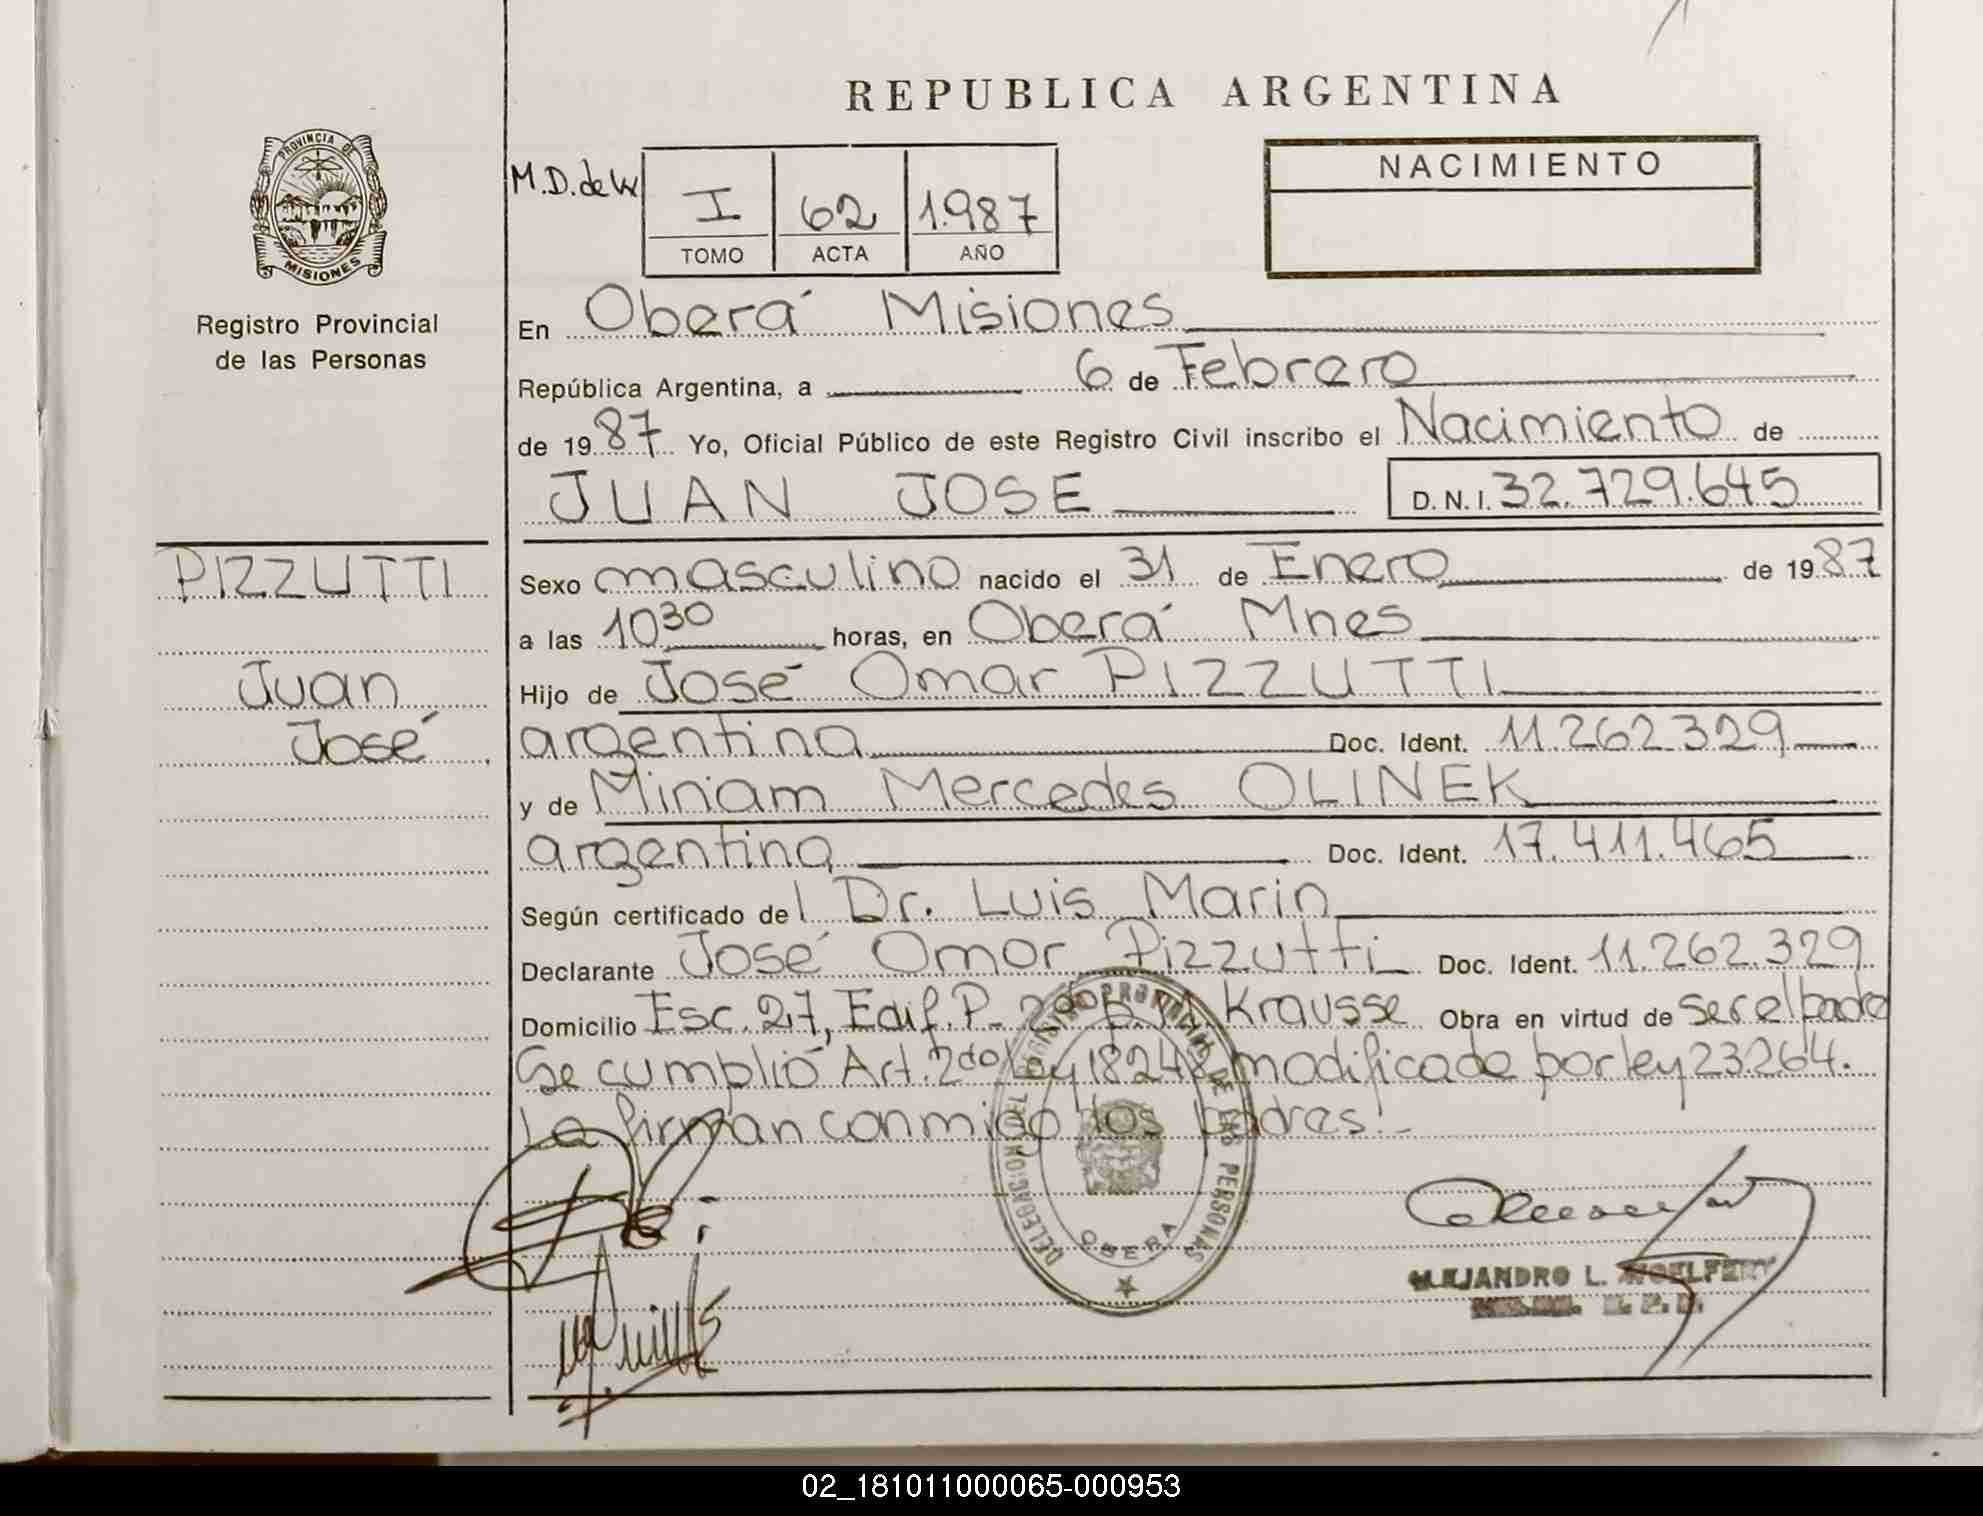 REPUBLICA ARGENTINA
PROVINCIA DE MISIONES
Registro Provincial
de las Personas
M.D. de W
I 62 1.987
TOMO ACTA AÑO
NACIMIENTO
En Oberá Misiones
República Argentina, a 6 de Febrero
de 1987 Yo, Oficial Público de este Registro Civil inscribo el Nacimiento de
JUAN JOSE D.N.I. 32.729.645
PIZZUTTI
Juan
José
Sexo masculino nacido el 31 de Enero de 1987
a las 10 30 horas, en Oberá Mnes
Hijo de José Omar PIZZUTTI
argentina Doc. Ident. 11.262.329
y de Miriam Mercedes OLINEK
argentina Doc. Ident. 17.411.465
Según certificado del Dr. Luis Marin
Declarante José Omar Pizzutti Doc. Ident. 11.262.329
Domicilio Esc. 27, Edif. P. Krausse Obra en virtud de ser el padre
Se cumplió Art. 2do ley 18248 modificada por ley 23264.
La firman conmigo los padres.-
DELEGACION DEL REGISTRO PROVINCIAL DE LAS PERSONAS
OBERA
ALEJANDRO L.
02_181011000065-000953